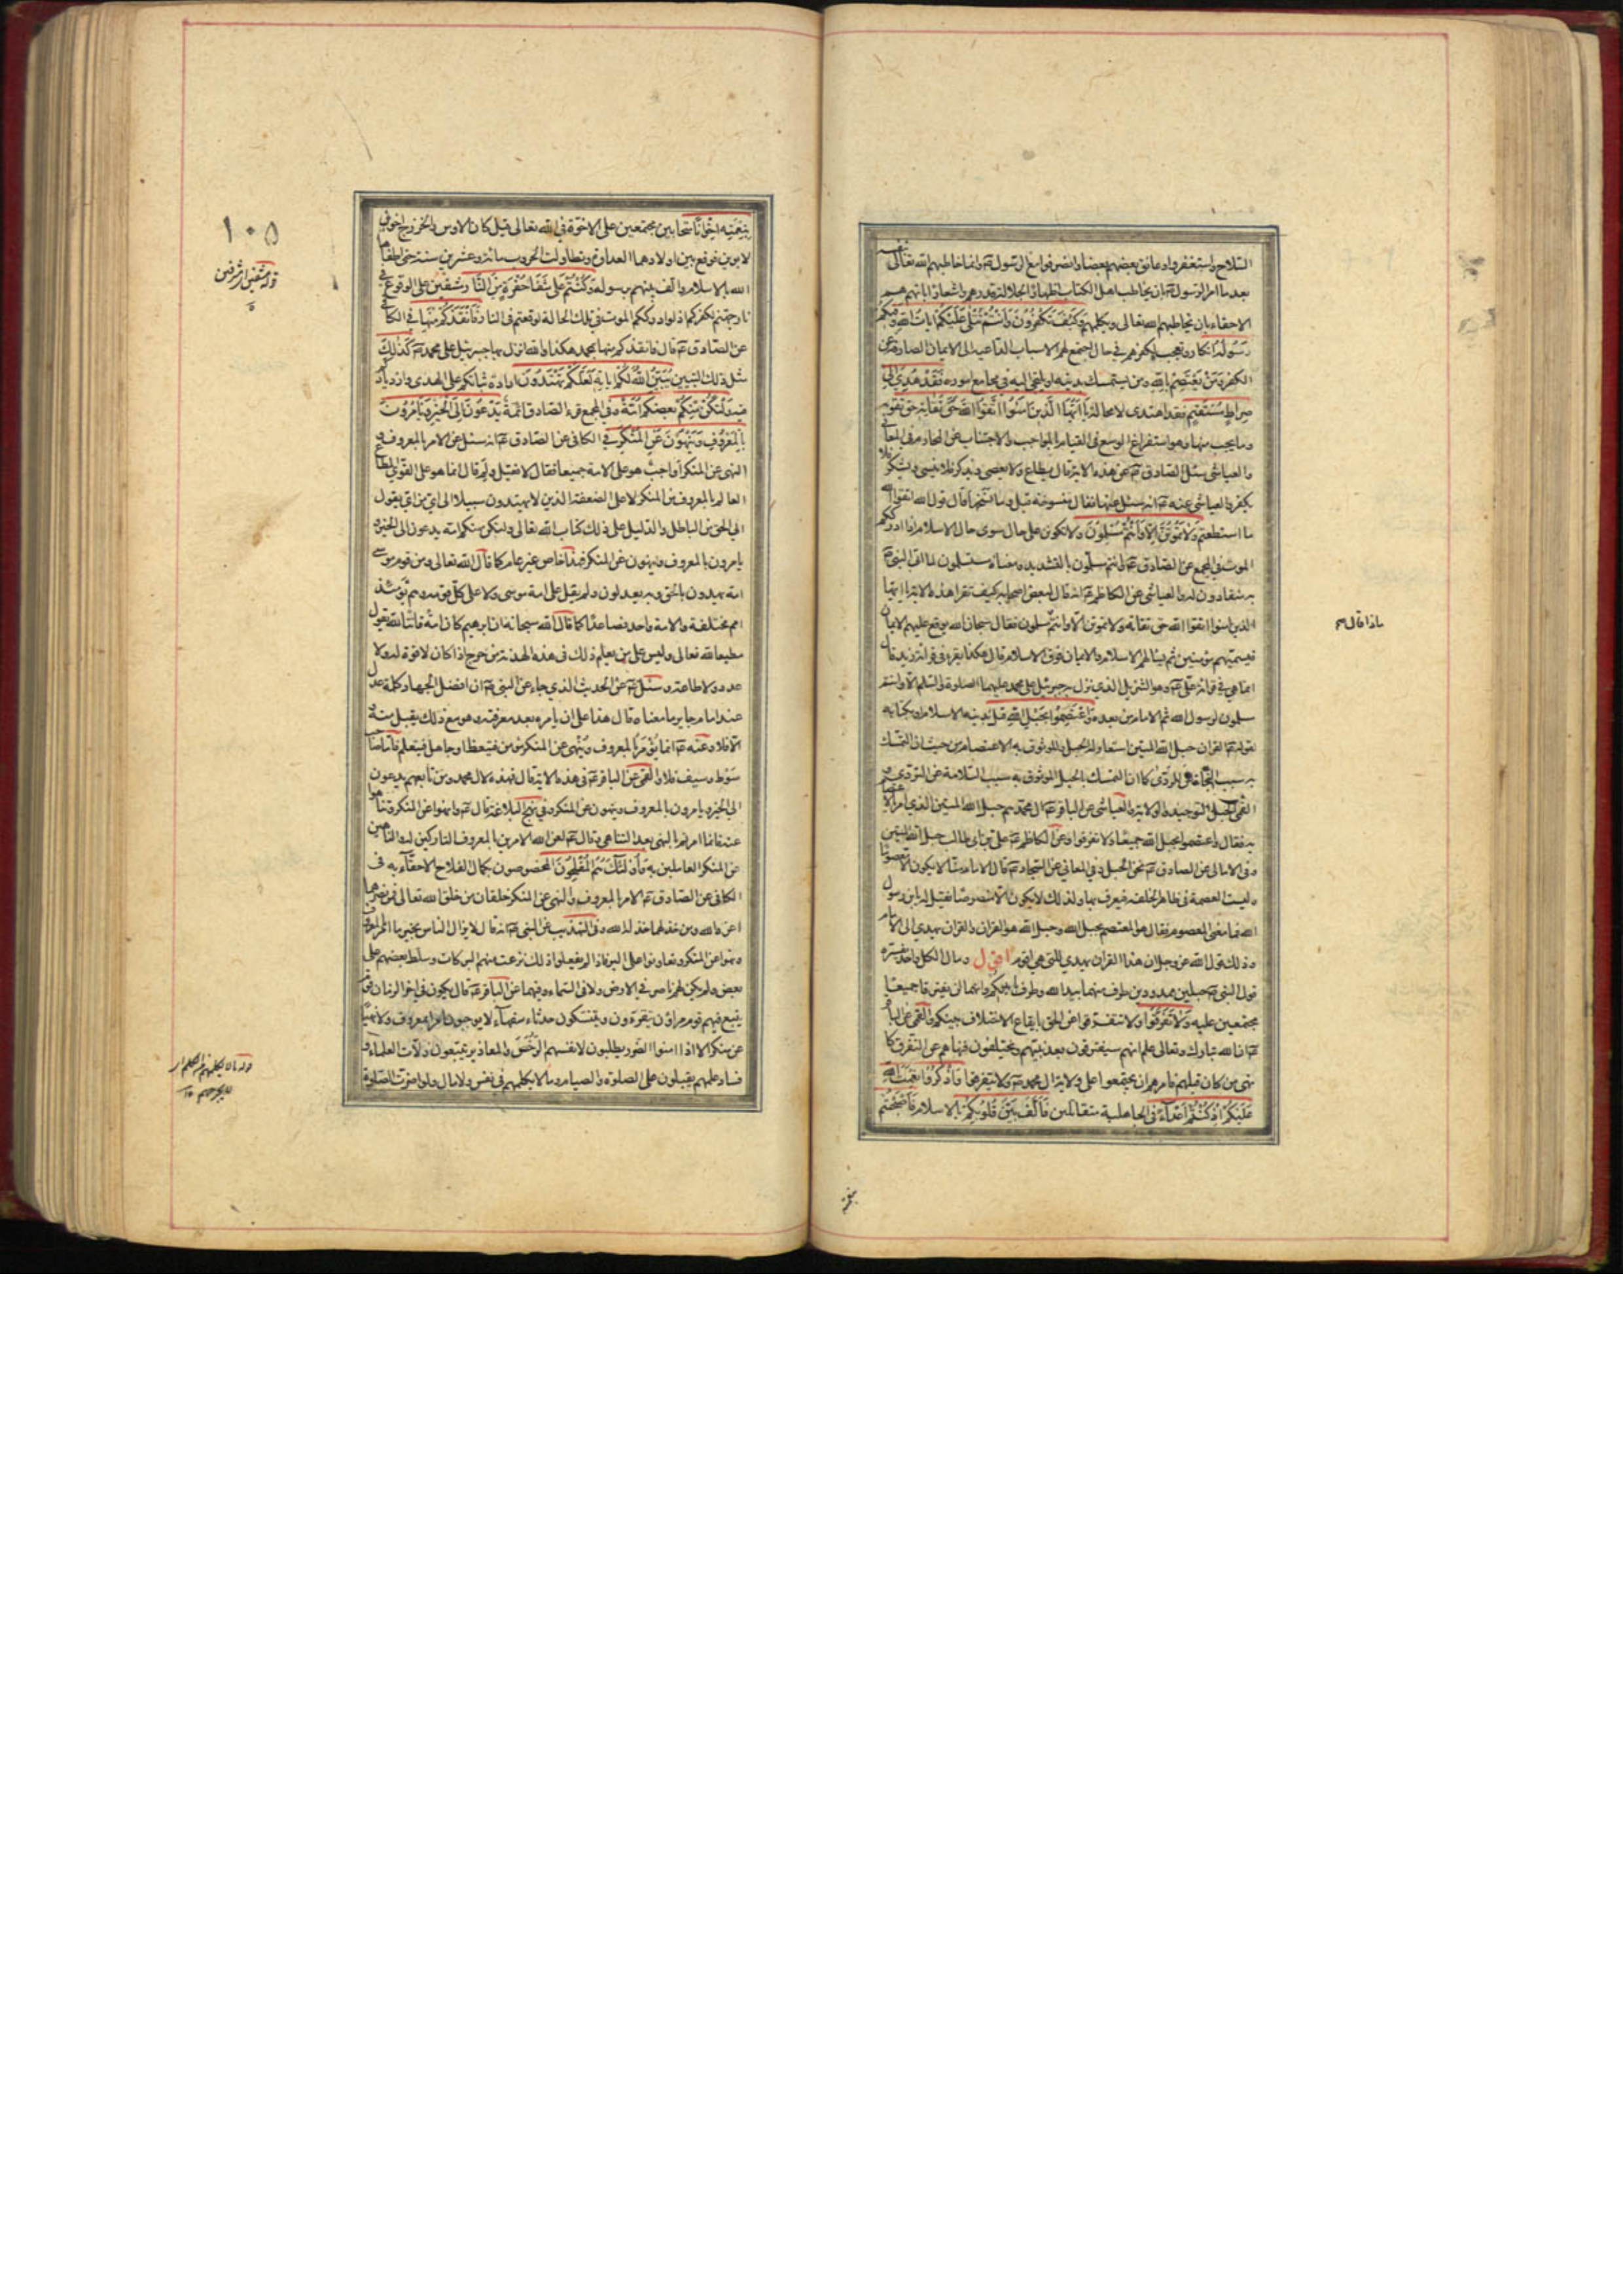 السلاح واستغفروا وعانق بعضهم بعضا وانصرفوا مع الرسول ۴ وانما خاطبهم الله تعالى بنفسه
بعد ما امر الرسول ۴ بان يخاطب اهل الكتاب اظهارا لجلالة قدرهم واشعارا بانهم هم
الاحقاء بان يخاطبهم الله تعالى ويكلمهم وَكَيْفَ تَكْفُرُونَ وَأَنْتُمْ تُتْلَى عَلَيْكُمْ آيَاتُ اللهِ وَفِيكُمْ
رَسُولُهُ انكار وتعجيب لكفرهم في حال اجتمع لهم الاسباب الداعية الى الايمان الصارفة عن
الكفر وَمَنْ يَعْتَصِمْ بِاللهِ ومن استمسك بدينه او التجى اليه في مجامع اموره فَقَدْ هُدِيَ إِلَى
صِرَاطٍ مُسْتَقِيمٍ فقد اهتدى لا محالة يَا أَيُّهَا الَّذِينَ آمَنُوا اتَّقُوا اللهَ حَقَّ تُقَاتِهِ حق تقويه
وما يجب منها وهو استفراغ الوسع في القيام بالمواجب والاجتناب عن المحارم في المعاني
والعياشي سئل الصادق ع عن هذه الاية قال يطاع ولا يعصى ويذكر فلا ينسى ويشكر فلا
يكفر والعياشي عنه ع انه سئل عنها فقال منسوخة قيل وما نسخها قال قول الله اتقوا الله
ما استطعتم وَلَا تَمُوتُنَّ إِلَّا وَأَنْتُمْ مُسْلِمُونَ ولا تكونن على حال سوى حال الاسلام اذا ادرككم
الموت في المجمع عن الصادق ع وانتم مسلمون بالتشديد ومعناه مستسلمون لما اتى النبي ۴
به منقادون له والعياشي عن الكاظم ع انه قال لبعض اصحابه كيف تقرا هذه الاية يا ايها
الذين امنوا اتقوا الله حق تقاته ولا تموتن الا وانتم مسلمون فقال سبحان الله يوقع عليهم الايمان
فيسميهم مؤمنين ثم يسالهم الاسلام والايمان فوق الاسلام قال هكذا يقرء في قراءة زيد قال
انما هي في قراءة علي ع وهو التنزيل الذي نزل به جبرئيل على محمد عليهما الصلوة والسلم الا وانتم
مسلمون لرسول الله ثم الامام من بعده وَاعْتَصِمُوا بِحَبْلِ اللهِ قيل بدينه الاسلام او بكتابه
لقوله ۴ القران حبل الله المتين استعار له الحبل وللوثوق به الاعتصام من حيث ان التمسك
به سبب النجاة عن الردى كما ان التمسك بالحبل الموثوق به سبب السلامة عن التردي و
القمي الحبل التوحيد والولاية والعياشي عن الباقر ع ال محمد هم حبل الله المتين الذي امر بالاعتصام
به فقال واعتصموا بحبل الله جميعا ولا تفرقوا وعن الكاظم ع علي بن ابي طالب حبل الله المتين
وفي الامالي عن الصادق ع نحن الحبل وفي المعاني عن السجاد ع قال الامام منا لا يكون الا معصوما
وليست العصمة في ظاهر الخلقة فيعرف بها ولذلك لا يكون الا منصوصا فقيل له يابن رسول
الله فما معنى المعصوم فقال هو المعتصم بحبل الله وحبل الله هو القران والقران يهدي الى الامام
وذلك قول الله عز وجل ان هذا القران يهدي للتي هي اقوم اقول ومال الكل واحد يفسره
قول النبي ۴ حبلين ممدودين طرف منهما بيد الله وطرف بايديكم وانهما لن يفترقا جميعا
مجتمعين عليه وَلَا تَفَرَّقُوا ولا تتفرقوا عن الحق بايقاع الاختلاف بينكم والقمي عن الباقر
ع ان الله تبارك وتعالى علم انهم سيفترقون بعد نبيهم ويختلفون فنهاهم عن التفرق كما
نهى من كان قبلهم فامرهم ان يجتمعوا على ولاية ال محمد ع ولا يتفرقوا وَاذْكُرُوا نِعْمَتَ اللهِ
عَلَيْكُمْ إِذْ كُنْتُمْ أَعْدَاءً في الجاهلية متقاتلين فَأَلَّفَ بَيْنَ قُلُوبِكُمْ بالاسلام فَأَصْبَحْتُمْ
بنعمته
ماذا قال م
بِنِعْمَتِهِ إِخْوَانًا متحابين مجتمعين على الاخوة في الله تعالى قيل كان الاوس والخزرج اخوين
لابوين فوقع بين اولادهما العداوة وتطاولت الحروب مائة وعشرين سنة حتى اطفاها
الله بالاسلام والف بينهم برسوله وَكُنْتُمْ عَلَى شَفَا حُفْرَةٍ مِنَ النَّارِ مشفين على الوقوع في
نار جهنم لكفركم اذ لو ادرككم الموت في تلك الحالة لوقعتم في النار فَأَنْقَذَكُمْ مِنْهَا في الكافي
عن الصادق ع قال فانقذكم منها بمحمد هكذا والله نزل بها جبرئيل على محمد ۴ كَذَلِكَ
مثل ذلك التبيين يُبَيِّنُ اللهُ لَكُمْ آيَاتِهِ لَعَلَّكُمْ تَهْتَدُونَ ارادة ثباتكم على الهدى وازدياد
فيه وَلْتَكُنْ مِنْكُمْ بعضكم أُمَّةٌ وفي المجمع قرء الصادق ائمة يَدْعُونَ إِلَى الْخَيْرِ وَيَأْمُرُونَ
بِالْمَعْرُوفِ وَيَنْهَوْنَ عَنِ الْمُنْكَرِ في الكافي عن الصادق ع انه سئل عن الامر بالمعروف و
النهي عن المنكر اواجب هو على الامة جميعا فقال لا فقيل ولم قال انما هو على القوي المطاع
العالم بالمعروف من المنكر لا على الضعفة الذين لا يهتدون سبيلا الى اي من اي يقول
الى الحق من الباطل والدليل على ذلك كتاب الله تعالى ولتكن منكم امة يدعون الى الخير و
يامرون بالمعروف وينهون عن المنكر فهذا خاص غير عام كما قال الله تعالى ومن قوم موسى
امة يهدون بالحق وبه يعدلون ولم يقل على امة موسى ولا على كل قومه وهم يومئذ
امم مختلفة والامة واحد فصاعدا كما قال الله سبحانه ان ابرهيم كان امة قانتا لله يقول
مطيعا لله تعالى وليس على من يعلم ذلك في هذه الهدنة من حرج اذا كان لا قوة له ولا
عدد ولا طاعة وسئل ع عن الحديث الذي جاء عن النبي ۴ ان افضل الجهاد كلمة عدل
عند امام جاير ما معناه قال هذا على ان يامره بعد معرفته وهو مع ذلك يقبل منه و
الا فلا وعنه ع انما يؤمر بالمعروف وينهى عن المنكر مؤمن فيتعظ او جاهل فيتعلم فاما صاحب
سوط وسيف فلا والقمي عن الباقر ع في هذه الاية قال فهذه لال محمد ومن تابعهم يدعون
الى الخير ويامرون بالمعروف وينهون عن المنكر وفي نهج البلاغة قال ع وانهوا عن المنكر وتناهوا
عنه فانما امرتم بالنهي بعد التناهي وقال ع لعن الله الامرين بالمعروف التاركين له والناهين
عن المنكر العاملين به وَأُولَئِكَ هُمُ الْمُفْلِحُونَ المخصوصون بكمال الفلاح الاحقاء به في
الكافي عن الصادق ع الامر بالمعروف والنهي عن المنكر خلقان من خلق الله تعالى فمن نصرهما
اعزه الله ومن خذلهما خذله الله وفي التهذيب عن النبي ۴ انه قال لا يزال الناس بخير ما امروا بالمعروف
ونهوا عن المنكر وتعاونوا على البر فاذا لم يفعلوا ذلك نزعت منهم البركات وسلط بعضهم على
بعض ولم يكن لهم ناصر في الارض ولا في السماء وفيهما عن الباقر ع قال يكون في اخر الزمان قوم
يتبع فيهم قوم مراؤن يتقرؤن ويتنسكون حدثاء سفهاء لا يوجبون امرا بمعروف ولا نهيا
عن منكر الا اذا امنوا الضرر يطلبون لانفسهم الرخص والمعاذير يتبعون زلات العلماء و
فساد علمهم يقبلون على الصلوة والصيام وما لا يكلمهم في نفس ولا مال ولو اضرت الصلوة
۱۰۵